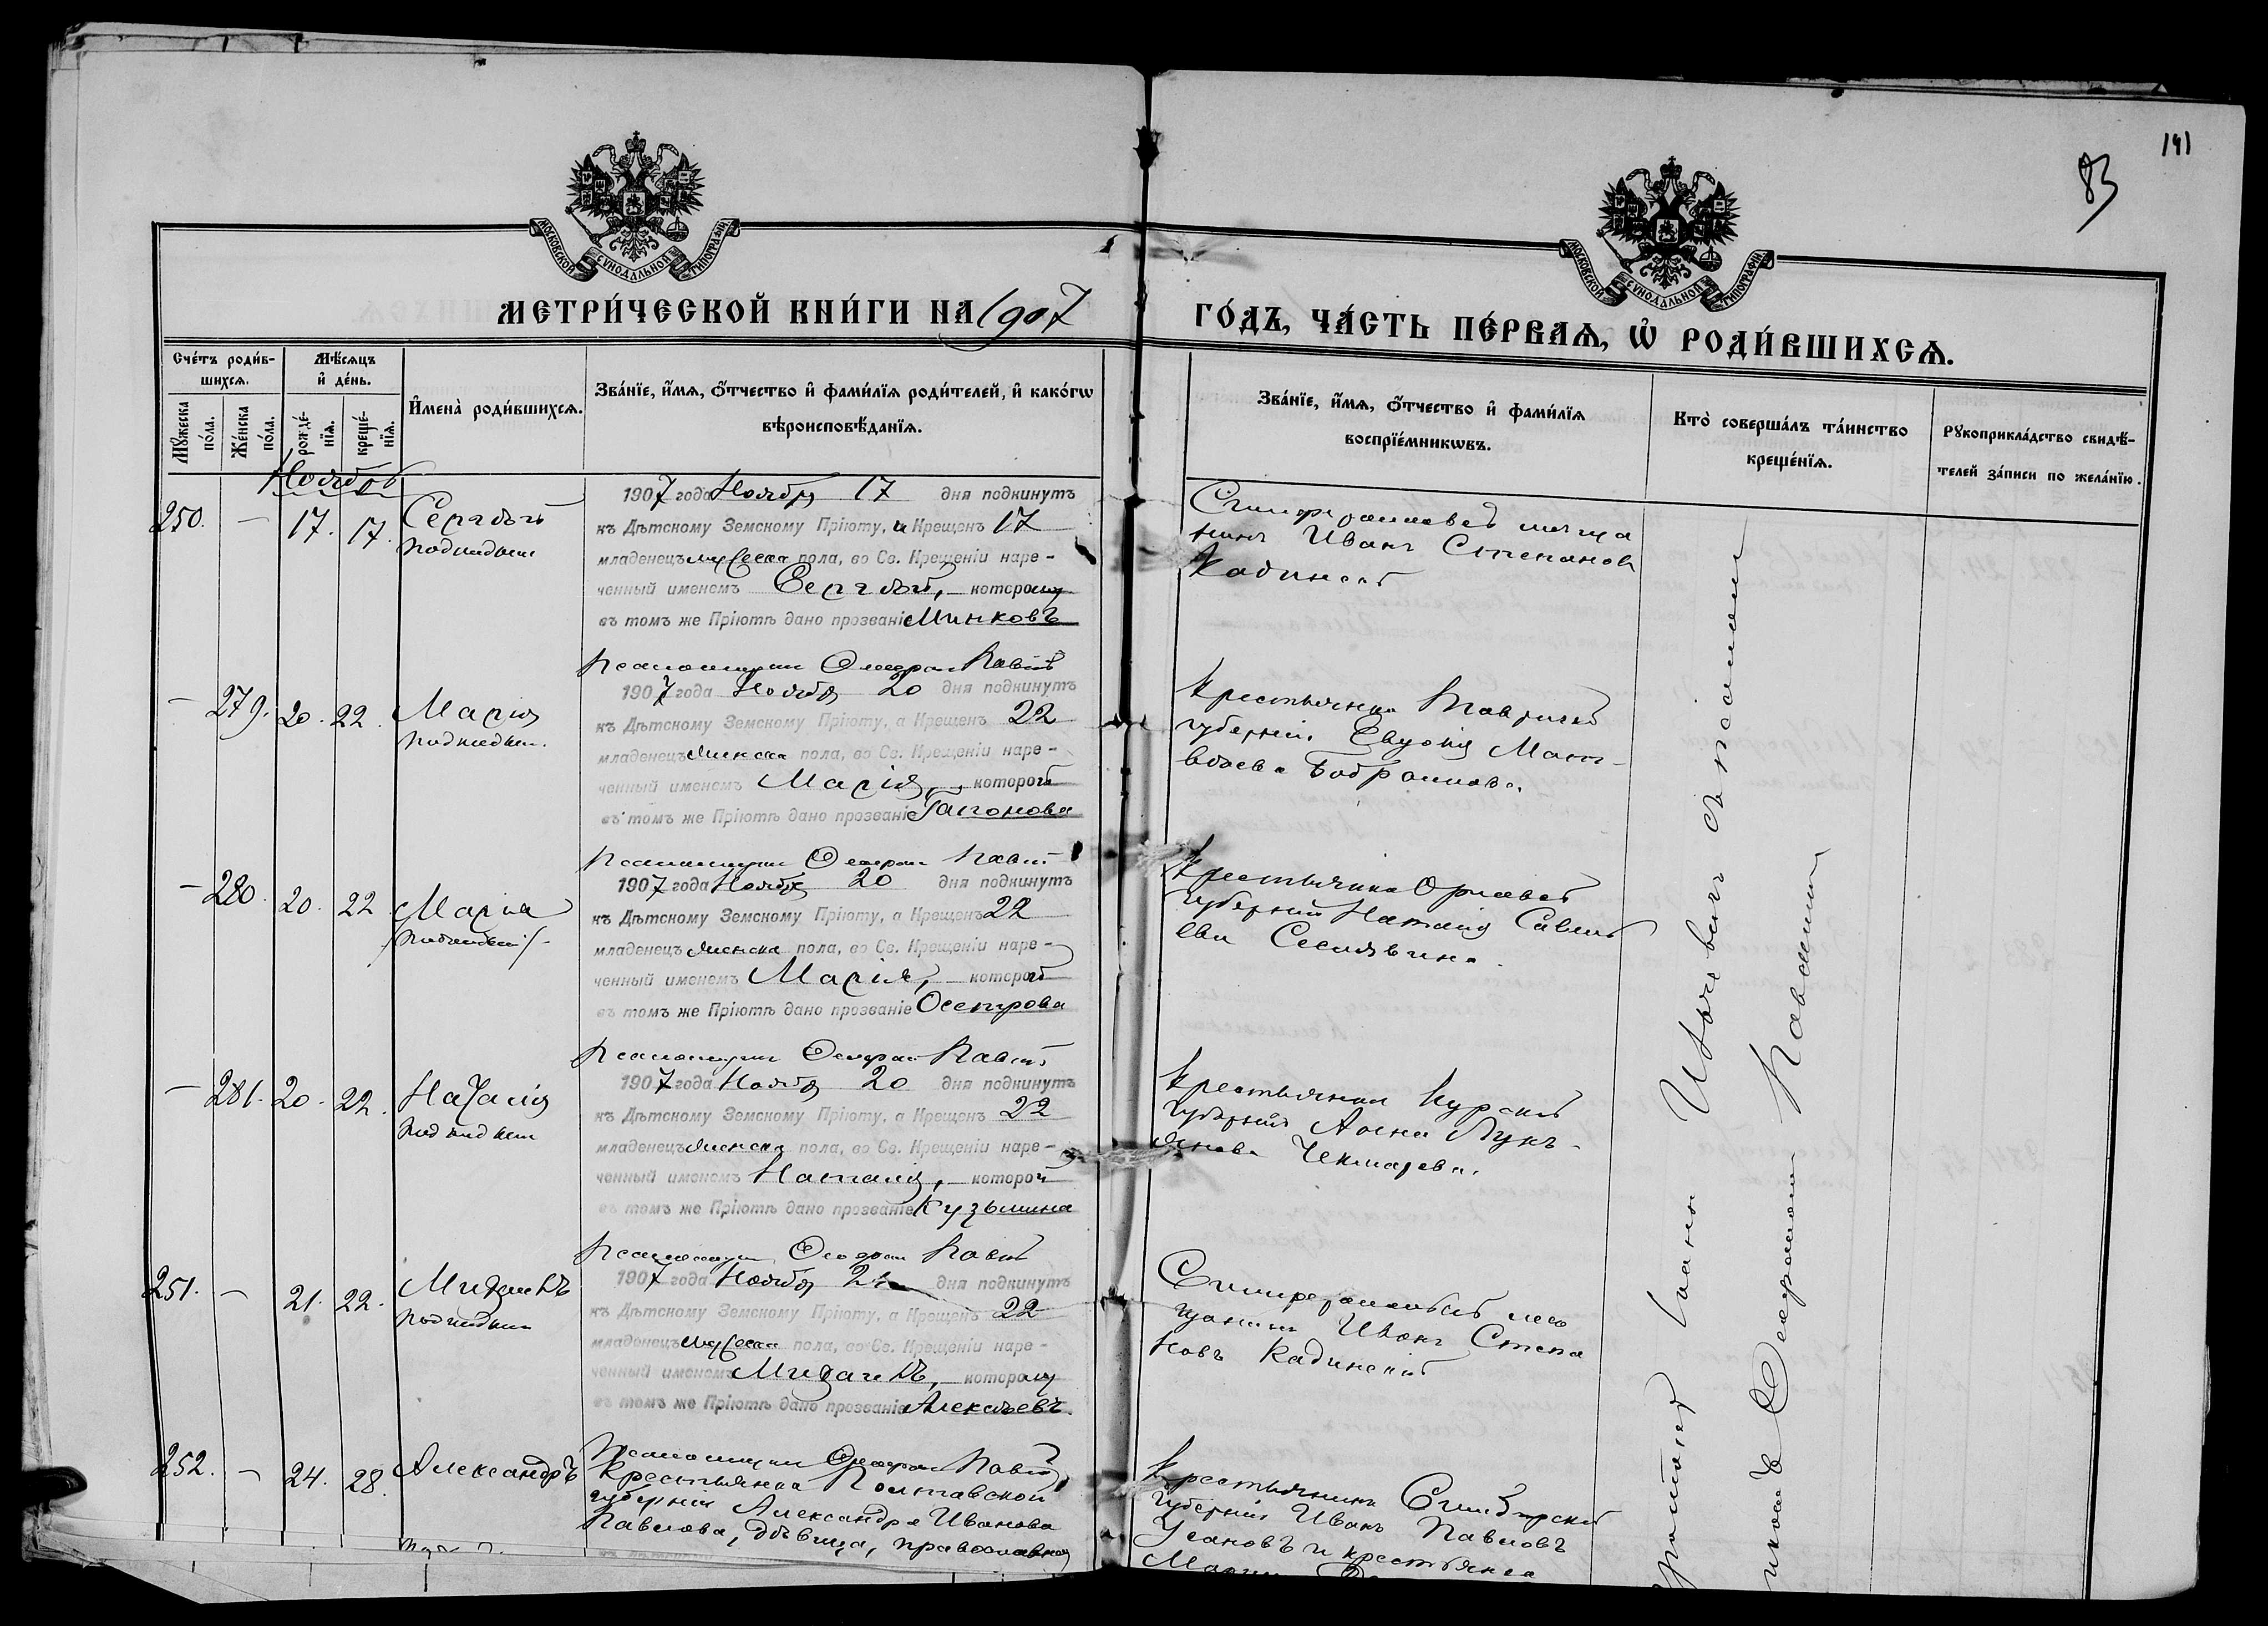 141
83
МОСКОВСКОЙ СѴНОДАЛЬНОЙ ТИПОГРАФІИ
МОСКОВСКОЙ СѴНОДАЛЬНОЙ ТИПОГРАФІИ
МЕТРИ́ЧЕСКОЙ КНИ́ГИ НА 1907
ГО́ДЪ, ЧА́СТЬ ПЕ́РВАѦ, Ѡ҆ РОДИ́ВШИХСѦ.
Сче́тъ роди́в-
шихсѧ.
Мꙋ́жеска
по́ла.
Же́нска
по́ла.
Мѣ́сѧцъ
и҆ де́нь.
рожде́-
нїѧ.
креще́-
нїѧ.
И҆мена̀ роди́вшихсѧ.
Зва́нїе, и҆́мѧ, ѻ҆́тчество и҆ фами́лїѧ роди́телей, и҆ како́гѡ
вѣроисповѣ́данїѧ.
Зва́нїе, и҆́мѧ, ѻ҆́тчество и҆ фами́лїѧ
воспрїе́мникѡвъ.
Кто̀ соверша́лъ та́инство
креще́нїѧ.
Рꙋкоприкла́дство свидѣ́-
телей за́писи по жела́нїю.
Ноябрь
250. — 17. 17. Сергѣй
подкидыш
1907 года Ноября 17 дня подкинутъ
къ Дѣтскому Земскому Пріюту, и Крещенъ 17
младенецъ мужеска пола, во Св. Крещеніи наре-
ченный именемъ Сергѣй, которому
въ томъ же Пріютѣ дано прозваніе Минковъ
Симферопольскій мѣща
нинъ Иванъ Степановъ
Кадинскій
— 279. 20. 22. Марія
подкидыш.
1907 года Ноября 20 дня подкинутъ
къ Дѣтскому Земскому Пріюту, а Крещенъ 22
младенецъ женска пола, во Св. Крещеніи наре-
ченный именемъ Марія, которой
въ томъ же Пріютѣ дано прозваніе Гапонова
Крестьянка Таврической
губерніи Евдокія Мат-
вѣева
— 280. 20. 22 Марія
1907 года Ноября 20 дня подкинутъ
къ Дѣтскому Земскому Пріюту, а Крещенъ 22
младенецъ женска пола, во Св. Крещеніи наре-
ченный именемъ Марія, которой
въ томъ же Пріютѣ дано прозваніе Осетрова
Крестьянка Орловской
губерніи Наталія Савель
ева
— 281. 20. 22. Наталія
подкидыш
1907 года Ноября 20 дня подкинутъ
къ Дѣтскому Земскому Пріюту, а Крещенъ 22
младенецъ женска пола, во Св. Крещеніи наре-
ченный именемъ Наталія, которой
въ томъ же Пріютѣ дано прозваніе Кузьмина
Крестьянка Курской
губерніи Анна Лукь-
янова Чекмарева.
251. — 21. 22. Михаилъ
подкидыш
1907 года Ноября 21 дня подкинутъ
къ Дѣтскому Земскому Пріюту, а Крещенъ 22
младенецъ мужеска пола, во Св. Крещеніи наре-
ченный именемъ Михаилъ, которому
въ томъ же Пріютѣ дано прозваніе Алексѣевъ.
Симферопольскій мѣ
щанинъ Иванъ Степа
новъ Кадинскій
252. — 24. 28. Александръ
Крестьянка Полтавской
губерніи Александра Иванова
Павлова, дѣвица, православная
Крестьянинъ Симбирской
губерніи Иванъ Павловъ
Усановъ и крестьянка
Іоаннъ